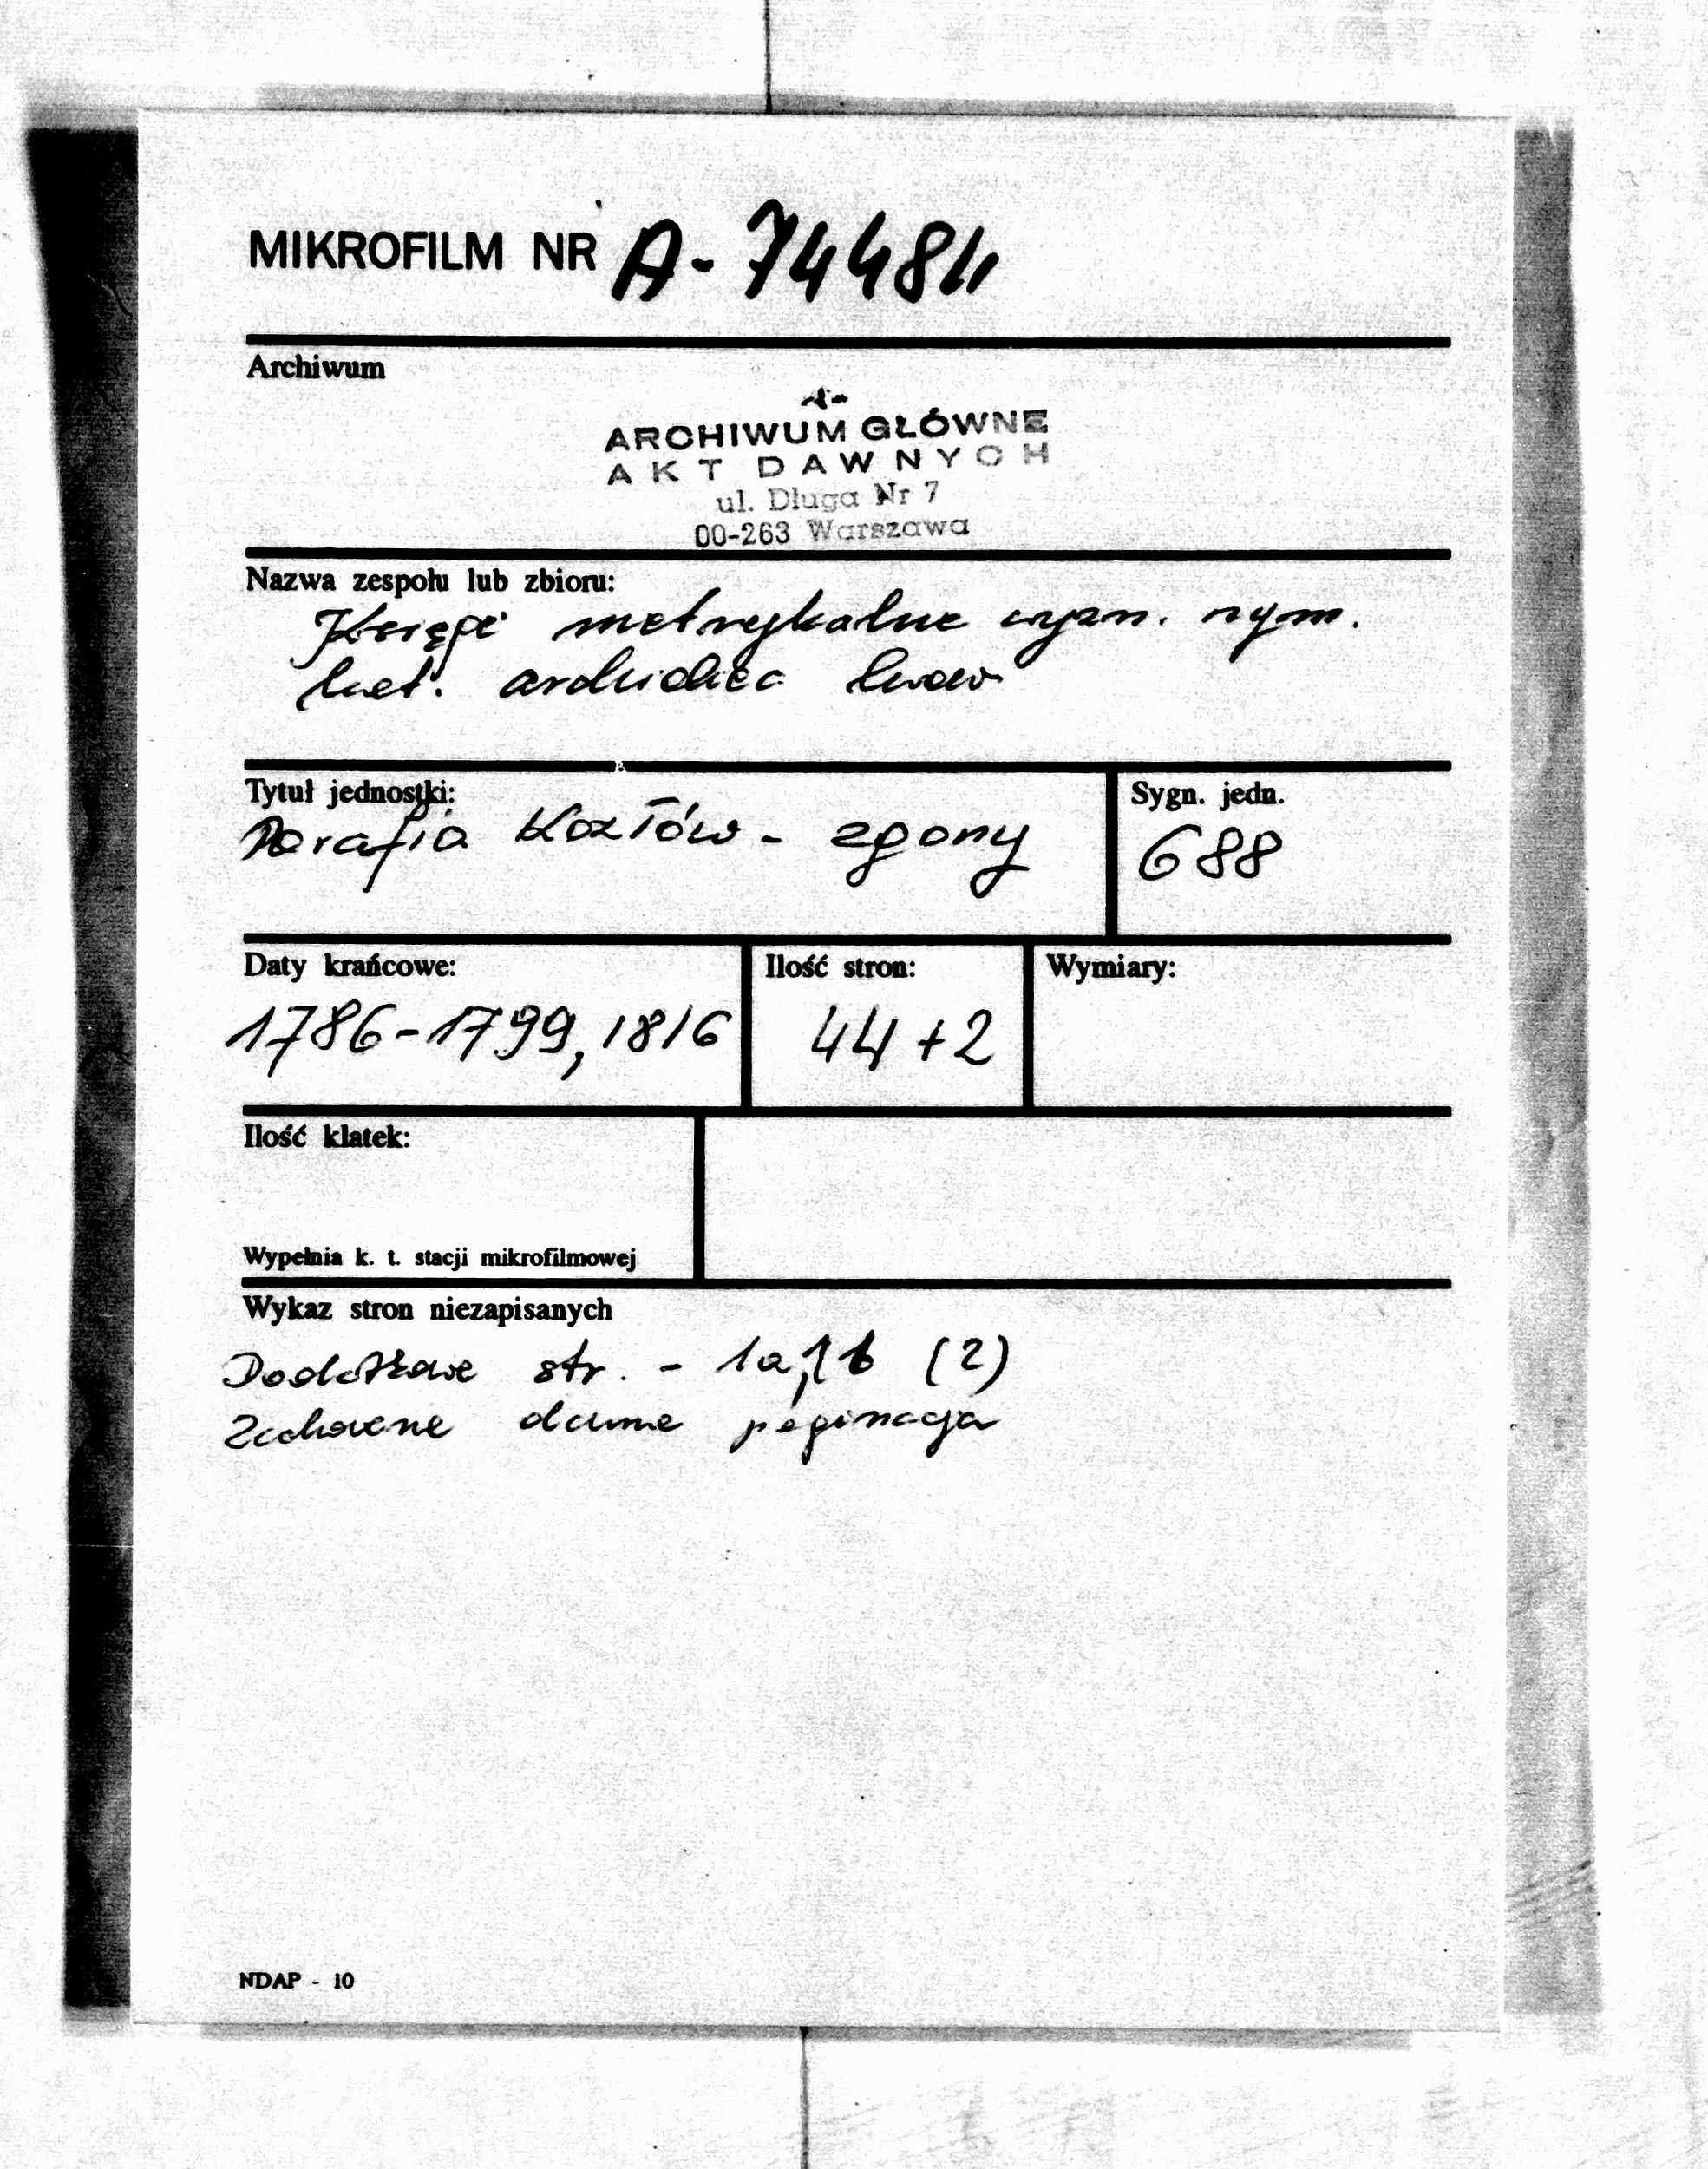 MIKROFILM NR A-74484
Archiwum
ARCHIWUM GŁÓWNE
AKT DAWNYCH
ul. Długa Nr 7
00-263 Warszawa
Nazwa zespołu lub zbioru:
Księgi metrykalne wyzn. rzym.
kat. archidiec lwow
Tytuł jednostki:
Parafia Kozłów - zgony
Sygn. jedn.
688
Daty krańcowe:
1786-1799, 1816
Ilość stron:
44+2
Wymiary:
Ilość klatek:
Wypełnia k. t. stacji mikrofilmowej
Wykaz stron niezapisanych
Dodatkowe str. - 1a, 1b (2)
Zachowane dawne paginacja
NDAP - 10